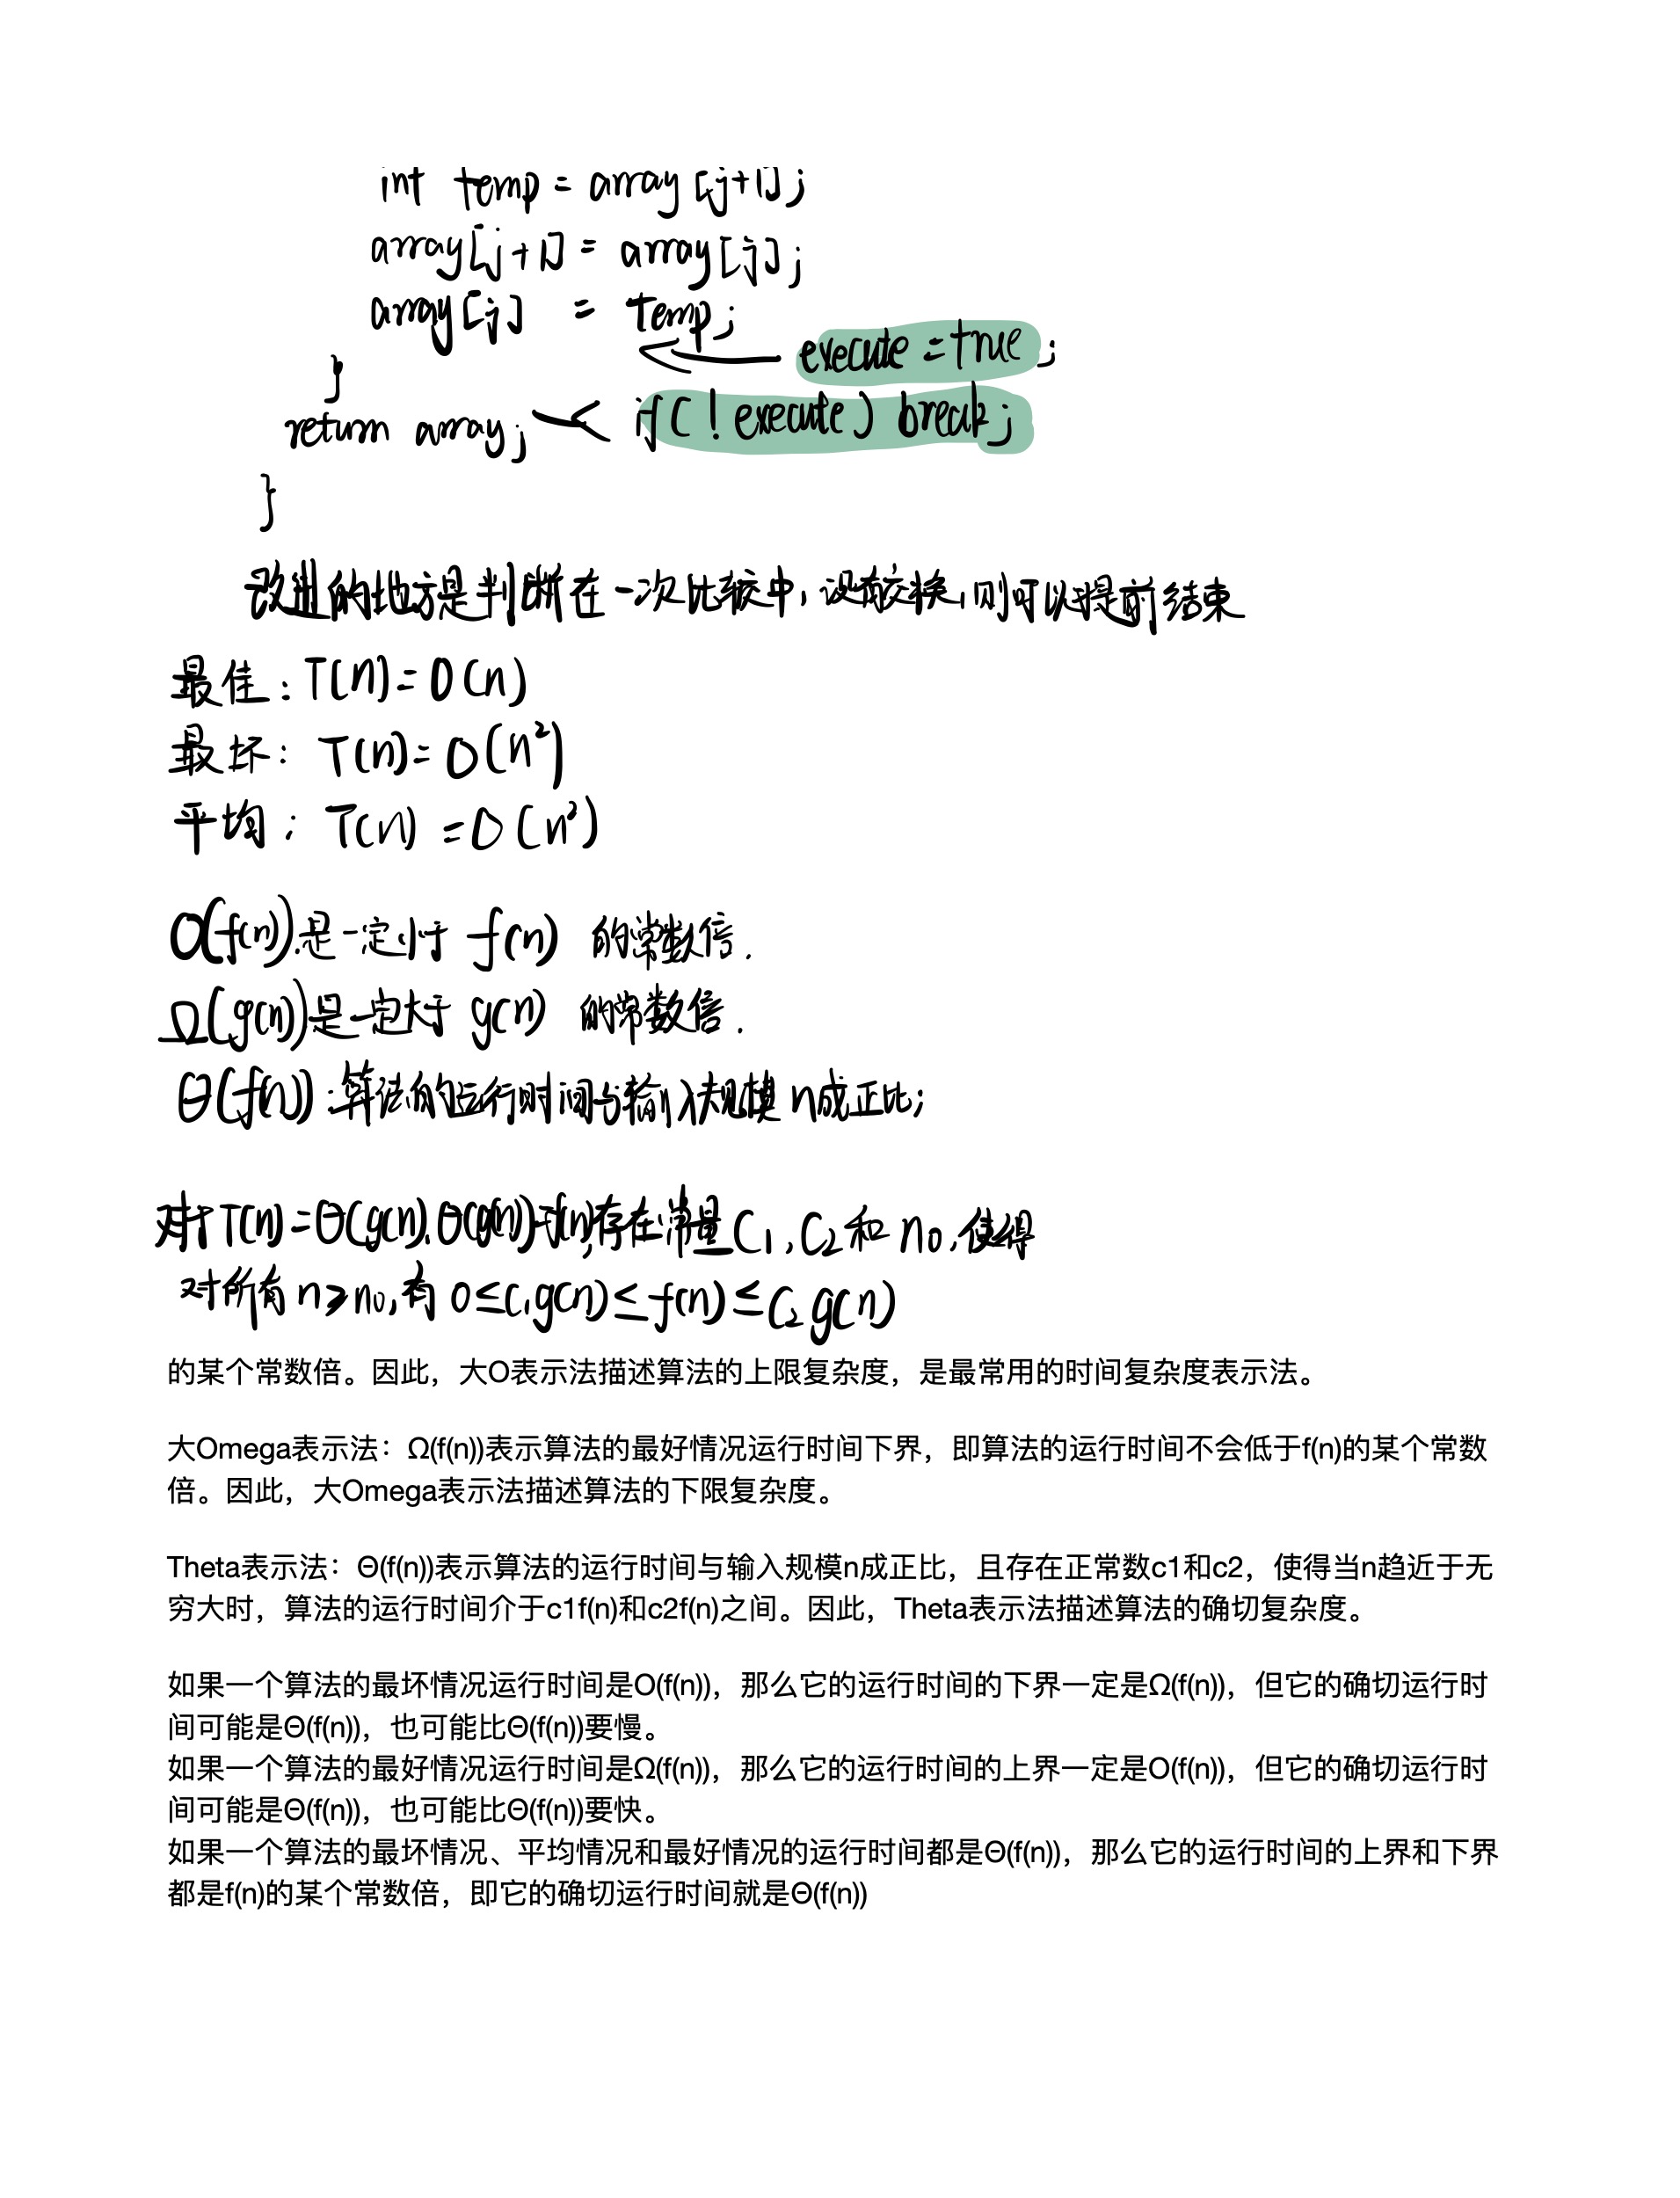 int temp = array[j+1];
array[j+1] = array[j];
array[j] = temp;
execute = true;
}
return array; if(!execute) break;
}
改进的地方是判断在一次比较中,没有交换,则可以提前结束
最佳:T(n)=O(n)
最坏:T(n)=O(n²)
平均:T(n)=O(n²)
O(f(n)).是一定小于 f(n) 的常数倍.
Ω(g(n))是一定大于 g(n) 的常数倍.
Θ(f(n)):算法的运行时间与输入规模n成正比;
对于T(n)=Θ(g(n)).Θ(g(n))=f(n),存在常量C1,C2和n0,使得
对所有n≥n0,有0≤c1g(n)≤f(n)≤C2g(n)
的某个常数倍。因此,大O表示法描述算法的上限复杂度,是最常用的时间复杂度表示法。
大Omega表示法:Ω(f(n))表示算法的最好情况运行时间下界,即算法的运行时间不会低于f(n)的某个常数
倍。因此,大Omega表示法描述算法的下限复杂度。
Theta表示法:Θ(f(n))表示算法的运行时间与输入规模n成正比,且存在正常数c1和c2,使得当n趋近于无
穷大时,算法的运行时间介于c1f(n)和c2f(n)之间。因此,Theta表示法描述算法的确切复杂度。
如果一个算法的最坏情况运行时间是O(f(n)),那么它的运行时间的下界一定是Ω(f(n)),但它的确切运行时
间可能是Θ(f(n)),也可能比Θ(f(n))要慢。
如果一个算法的最好情况运行时间是Ω(f(n)),那么它的运行时间的上界一定是O(f(n)),但它的确切运行时
间可能是Θ(f(n)),也可能比Θ(f(n))要快。
如果一个算法的最坏情况、平均情况和最好情况的运行时间都是Θ(f(n)),那么它的运行时间的上界和下界
都是f(n)的某个常数倍,即它的确切运行时间就是Θ(f(n))